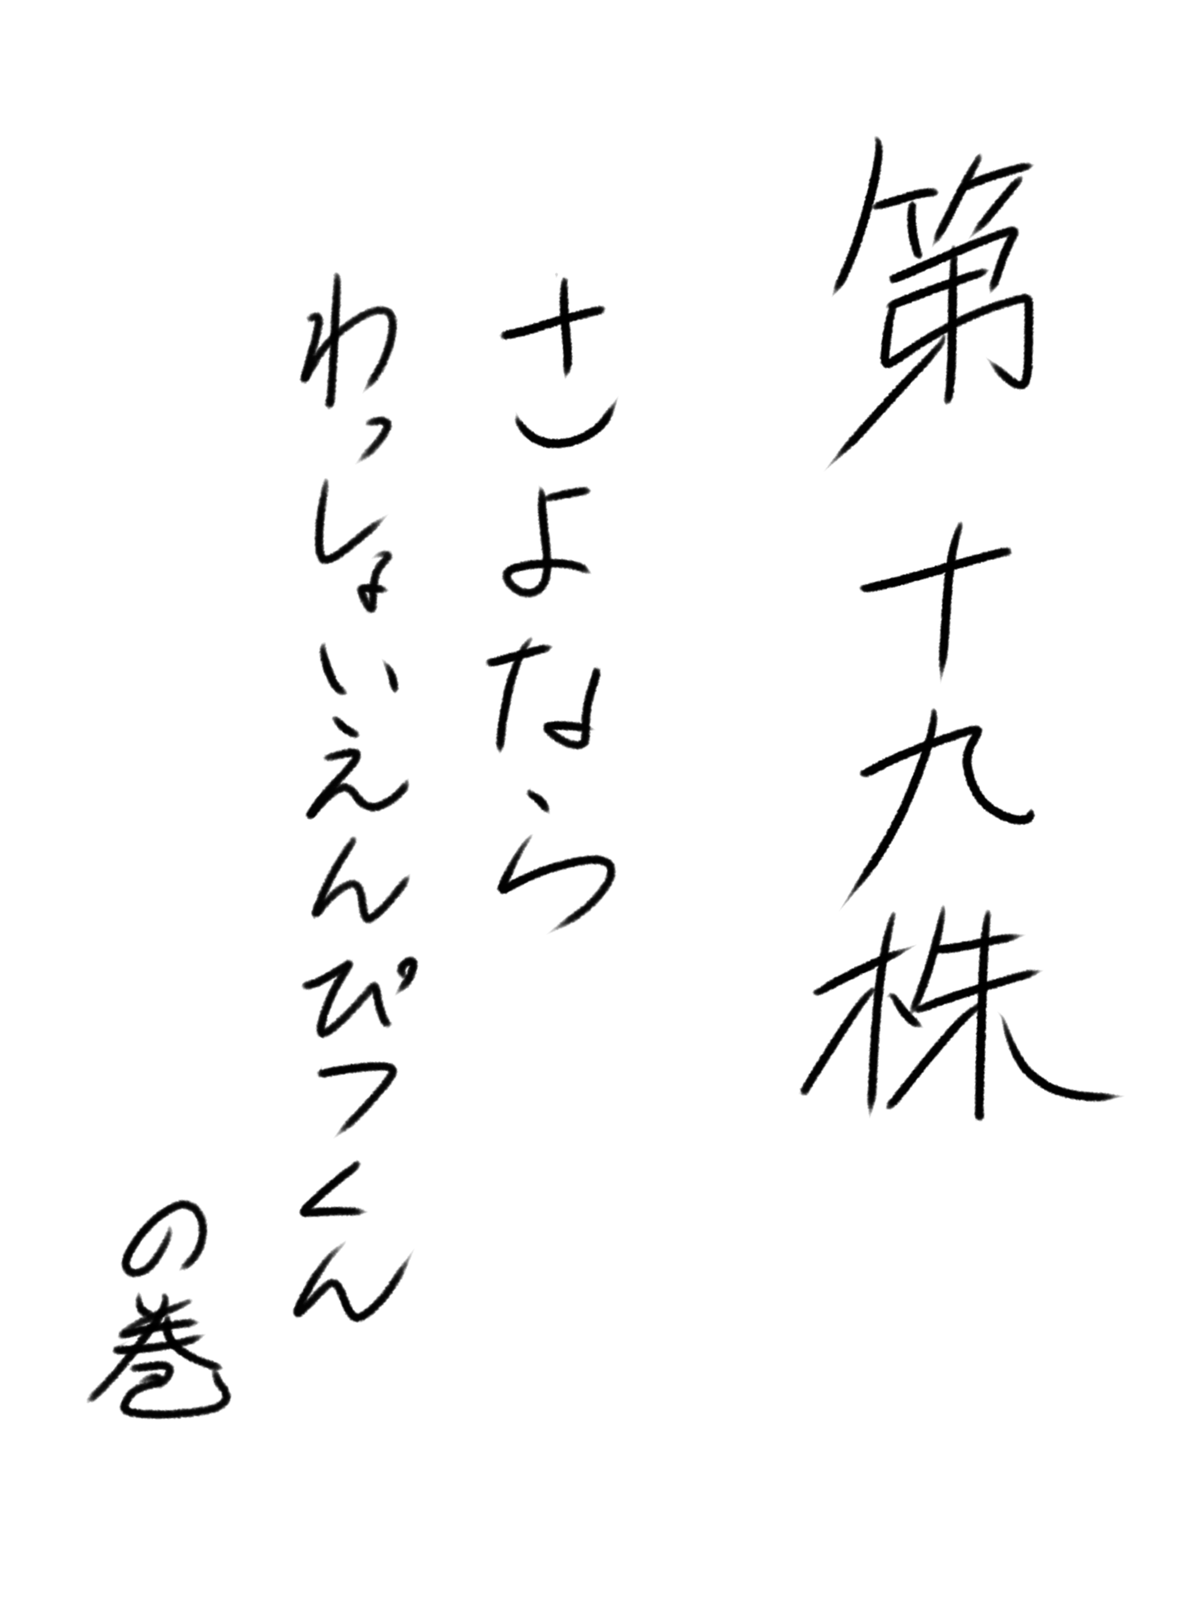 第十九株
さよなら
わっしょいえんぴつくん
の巻